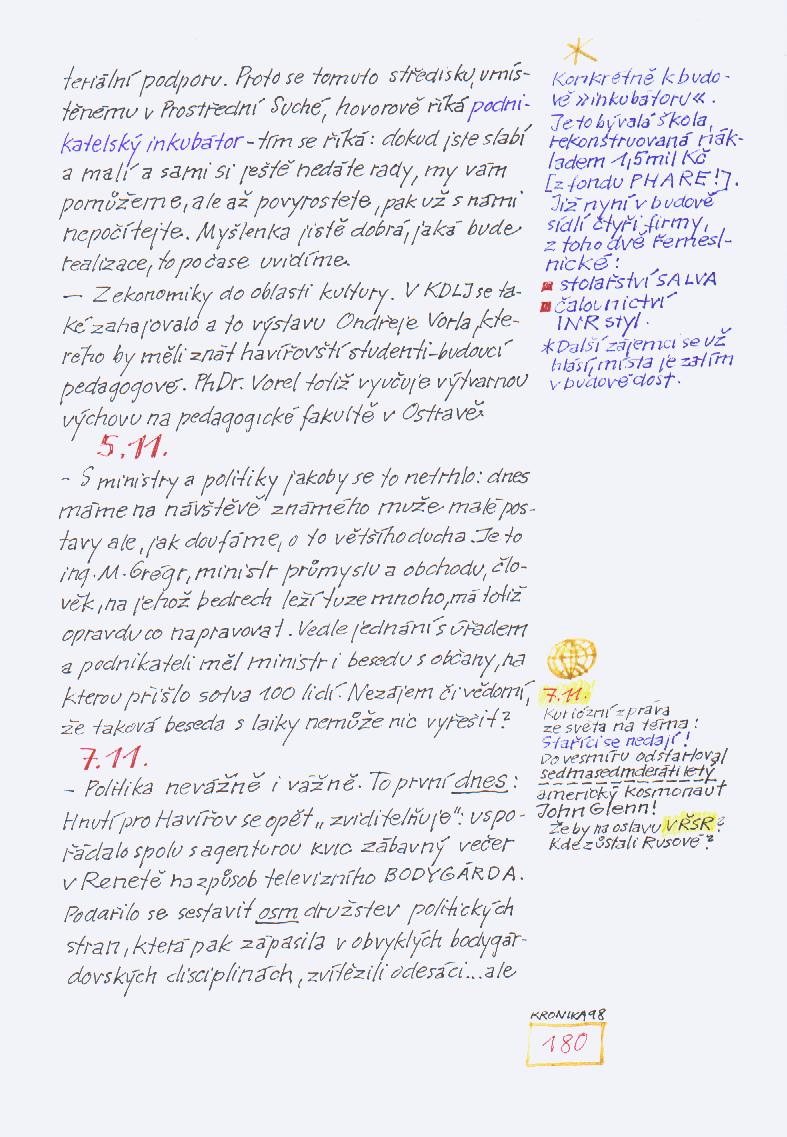 teriální podporu. Proto se tomuto středisku, umís-
těnému v Prostřední Suché, hovorově říká podni-
katelský inkubátor - tím se říká: dokud jste slabí
a malí a sami si ještě nedáte rady, my vám
pomůžeme, ale až povyrostete, pak už s námi
nepočítejte. Myšlenka jistě dobrá, jaká bude
realizace, to po čase uvidíme.
— Z ekonomiky do oblasti kultury. V KDLJ se ta-
ké zahajovalo a to výstavu Ondřeje Vorla, kte-
rého by měli znát havířovští studenti-budoucí
pedagogové. PhDr. Vorel totiž vyučuje výtvarnou
výchovu na pedagogické fakultě v Ostravě.
5.11.
- S ministry a politiky jakoby se to netrhlo: dnes
máme na návštěvě známého muže malé pos-
tavy ale, jak doufáme, o to většího ducha. Je to
ing. M. Grégr, ministr průmyslu a obchodu, člo-
věk, na jehož bedrech leží tuze mnoho, má totiž
opravdu co napravovat. Vedle jednání s úřadem
a podnikateli měl ministr i besedu s občany, na
kterou přišlo sotva 100 lidí. Nezájem či vědomí,
že taková beseda s laiky nemůže nic vyřešit?
7.11.
- Politika nevážně i vážně. To první dnes:
Hnutí pro Havířov se opět „zviditelňuje": uspo-
řádalo spolu s agenturou kvic zábavný večer
v Renetě na způsob televizního BODYGÁRDA.
Podařilo se sestavit osm družstev politických
stran, která pak zápasila v obvyklých bodygár-
dovských disciplinách, zvítězili odesáci...ale
Konkrétně k budo-
vě »inkubátoru«.
Je to bývalá škola,
rekonstruovaná nák-
ladem 1,5 mil Kč
[z fondu PHARE!].
Již nyní v budově
sídlí čtyři firmy,
z toho dvě řemesl-
nické:
stolařství SALVA
čalounictví
INR styl.
*Další zájemci se už
hlásí, místa je zatím
v budově dost.
7.11.
Kuriózní zpráva
ze světa na téma:
Staříci se nedají!
Do vesmíru odstartoval
sedmasedmdesátiletý
americký kosmonaut
John Glenn!
Že by na oslavu VŘSR?
Kde zůstali Rusové?
KRONIKA 98
180